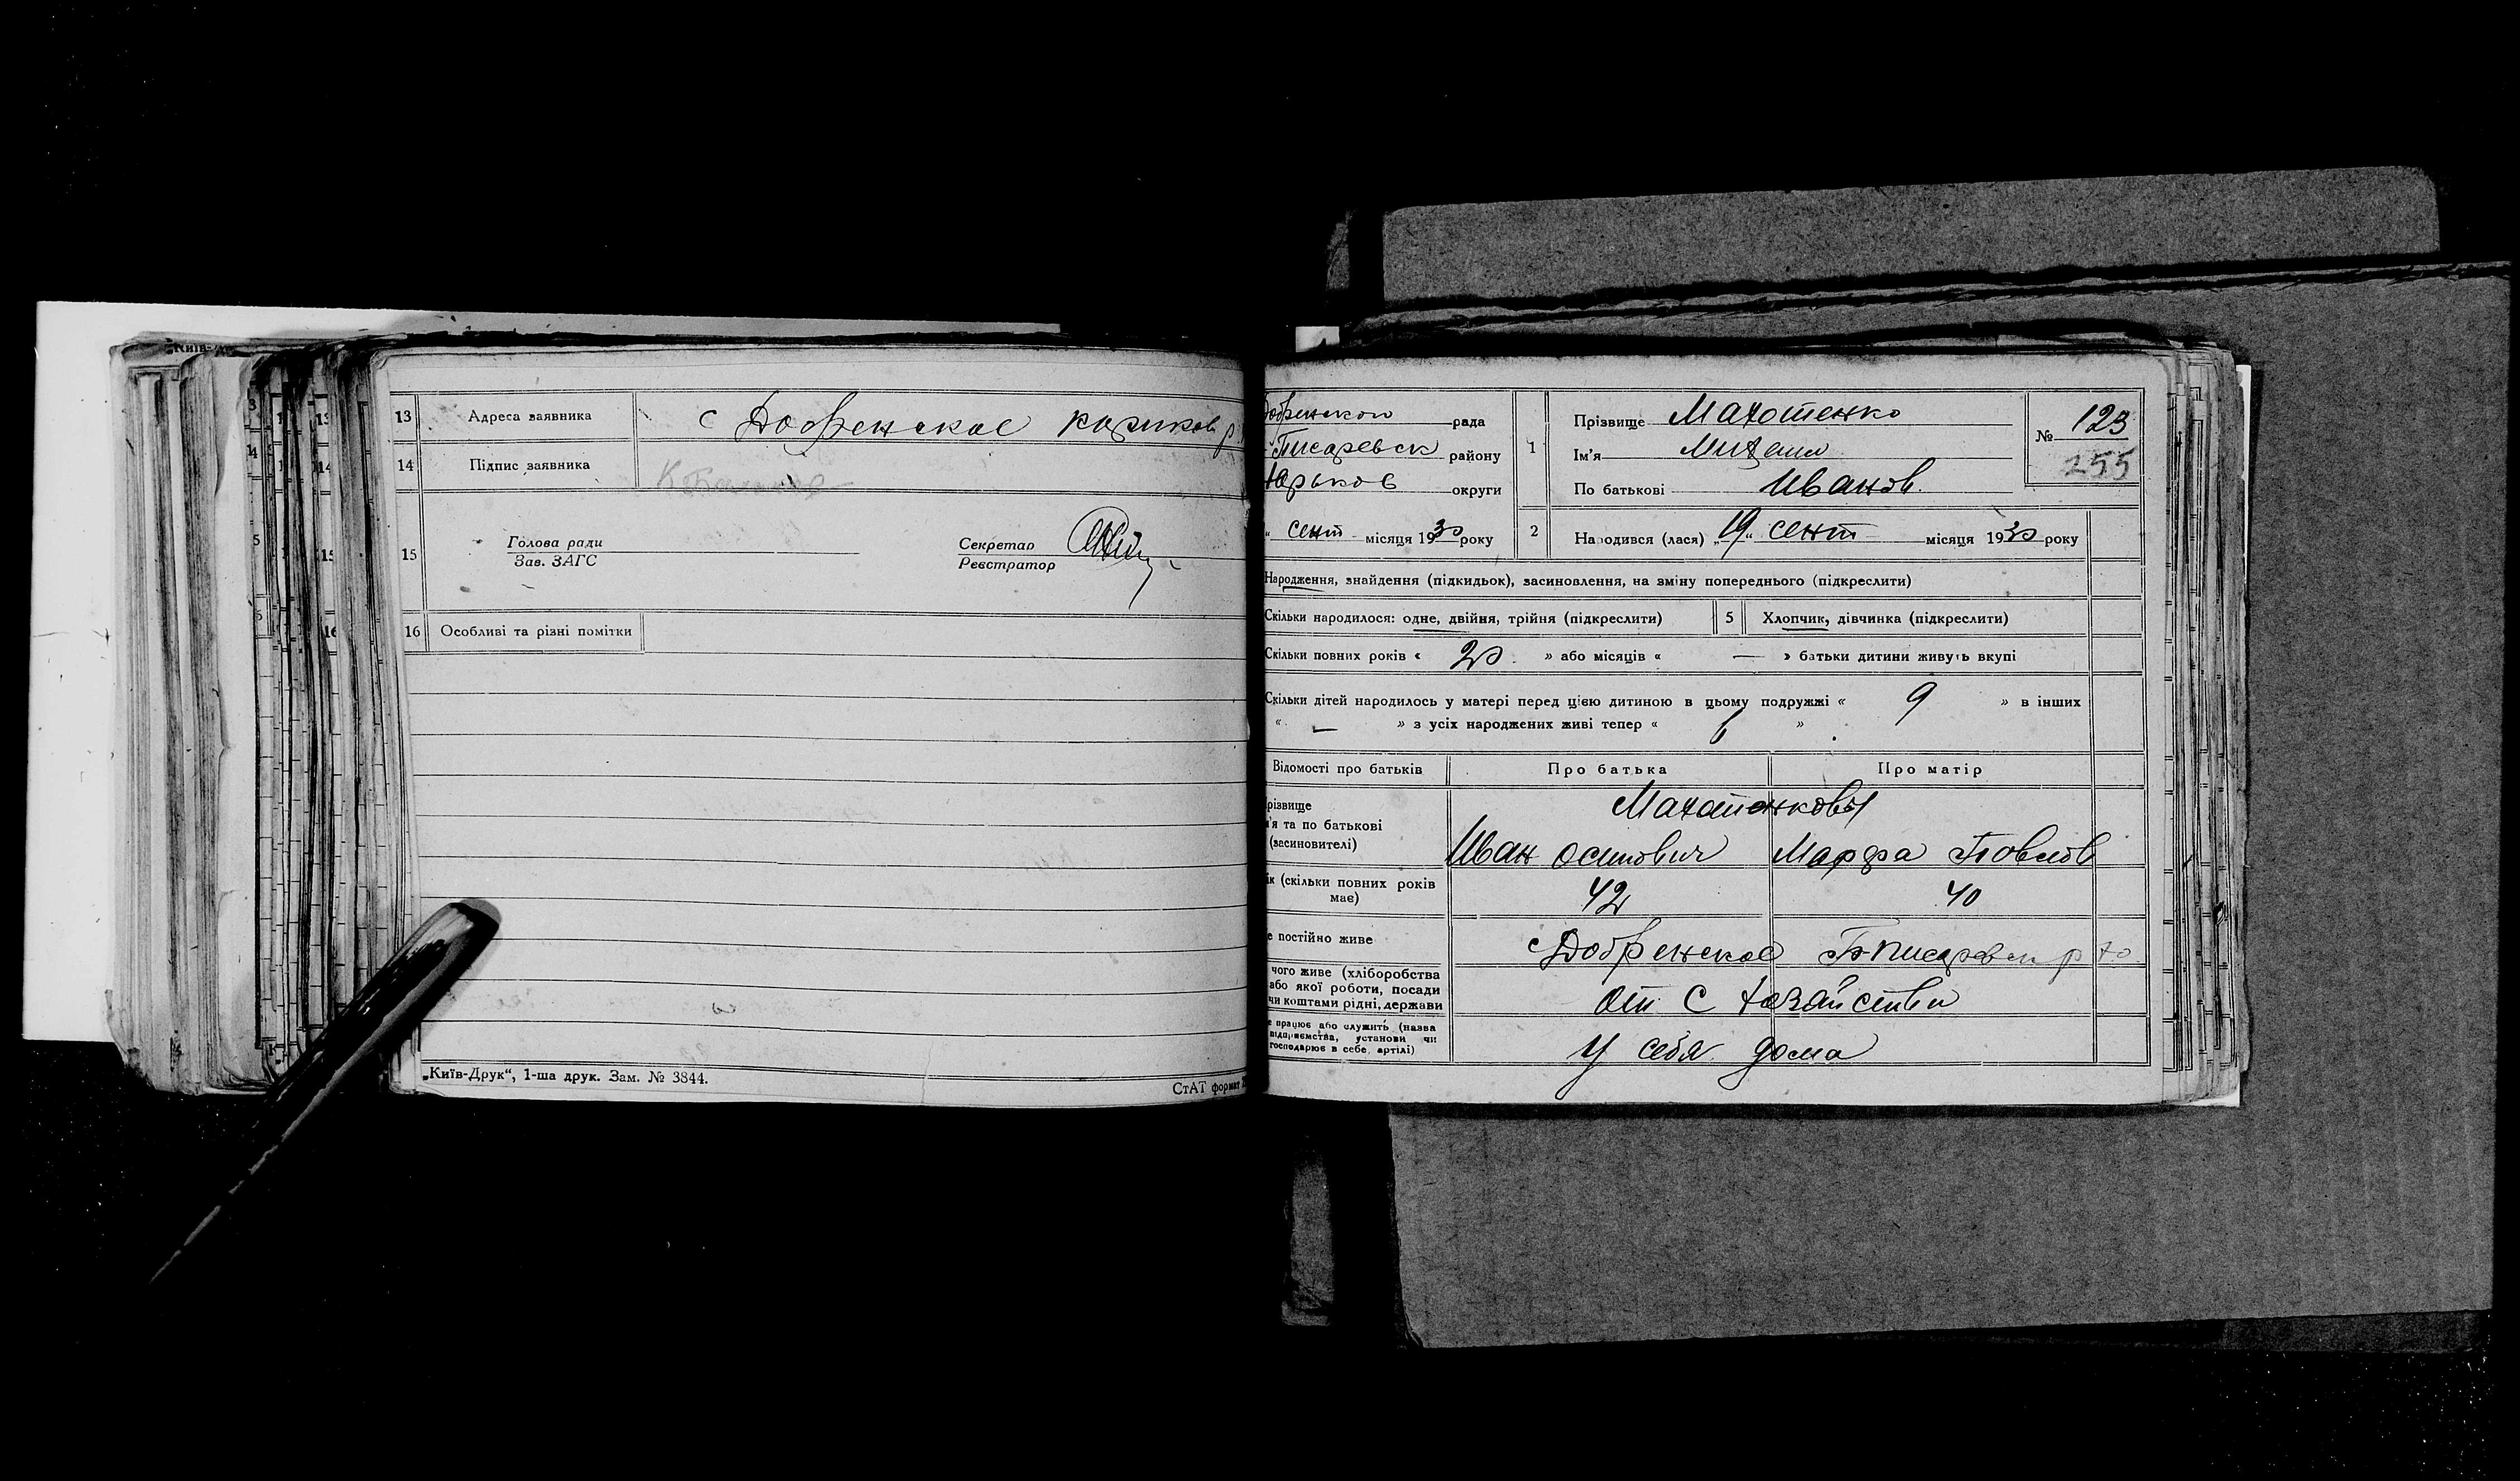 13 Адреса заявника с Добренское
14 Підпис заявника
15 Голова ради
Зав. ЗАГС
Секретар
Реєстратор
16 Особливі та різні помітки
„Київ-Друк“, 1-ша друк. Зам. № 3844.
СтАТ формат
рада
Писаревск району
округи
„ сент місяця 1930 року
1 Прізвище Махотенко
Ім’я Михаил
По батькові Иванов.
№ 123
255
2 Народився (лася) „19“ сент місяця 1930 року
Народження, знайдення (підкидьок), засиновлення, на зміну попереднього (підкреслити)
Скільки народилося: одне, двійня, трійня (підкреслити) 5 Хлопчик, дівчинка (підкреслити)
Скільки повних років « 20 » або місяців « — » батьки дитини живуть вкупі
Скільки дітей народилось у матері перед цією дитиною в цьому подружжі « 9 » в інших
« — » з усіх народжених живі тепер « 6 »
Відомості про батьків Про батька Про матір
різвище
м’я та по батькові
(засиновителі)
Махотенковы
Иван Осипович Марфа Повлов
ік (скільки повних років має) 42 40
е постійно живе с Добренское Б-Писаревск р
чого живе (хліборобства
або якої роботи, посади
чи коштами рідні, держави
от с хозяйства
е працює або служить (назва
підприємства, установи чи
господарює в себе, артілі)
у себя дома